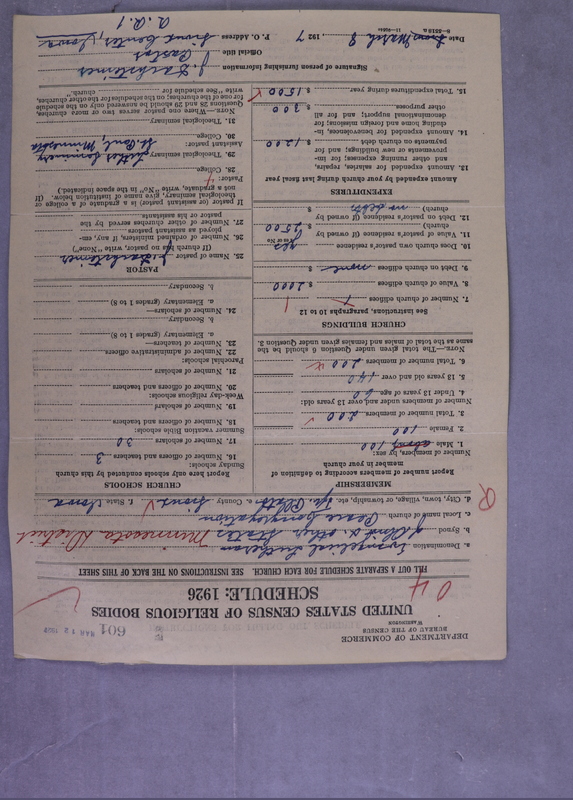 DEPARTMENT OF COMMERCE
BUREAU OF THE CENSUS
WASHINGTON
601
MAR 12 1927
UNITED STATES CENSUS OF RELIGIOUS BODIES
SCHEDULE: 1926
04
FILL OUT A SEPARATE SCHEDULE FOR EACH CHURCH. SEE INSTRUCTIONS ON THE BACK OF THIS SHEET
a. Denomination Evangelical Lutheran
b. Synod of Ohio & other States Minnesota District
c. Local name of church Peace Congregation
d. City, town, village, or township, etc. e. County Sioux f. State Iowa
MEMBERSHIP
Report number of members according to definition of
member in your church
Number of members, by sex:
1. Male about 100
2. Female 100
3. Total number of members 200
Number of members under and over 13 years old:
4. Under 13 years of age 60
5. 13 years old and over 140
6. Total number of members 200
NOTE.—The total given under Question 6 should be the
same as the total of males and females given under Question 3.
CHURCH BUILDINGS
See instructions, paragraphs 10 to 12
7. Number of church edifices 1
8. Value of church edifices $ 2000
9. Debt on church edifices $ none
10. Does church own pastor's residence yes
(Yes or No)
11. Value of pastor's residence (if owned by
church) $ 2500
12. Debt on pastor's residence (if owned by
church) $ no debts
EXPENDITURES
Amount expended by your church during last fiscal year
13. Amount expended for salaries, repairs,
and other running expenses; for im-
provements or new building; and for
payments on church debt $ 1200
14. Amount expended for benevolences, in-
cluding home and foreign missions; for
denominational support; and for all
other purposes $ 300
15. Total expenditures during year $ 1500
CHURCH SCHOOLS
Report here only schools conducted by this church
Sunday schools:
16. Number of officers and teachers 3
17. Number of scholars 30
Summer vacation Bible schools:
18. Number of officers and teachers
19. Number of scholars
Week-day religious schools:
20. Number of officers and teachers
21. Number of scholars
Parochial schools:
22. Number of administrative officers
23. Number of teachers—
a. Elementary (grades 1 to 8)
b. Secondary
24. Number of scholars—
a. Elementary (grades 1 to 8)
b. Secondary
PASTOR
25. Name of pastor
(If church has no pastor, write "None")
26. Number of ordained ministers, if any, em-
ployed as assistants
27. Number of other churches served by the
pastor or his assistants
If pastor (or assistant pastor) is a graduate of a college or
theological seminary, give name of institution below. (If
not a graduate, write "No" in the space indicated.)
Pastor:
28. College
29. Theological seminary Luther Seminary
St. Paul, Minnesota
Assistant pastor:
30. College
31. Theological seminary
NOTE.—Where one pastor serves two or more churches,
Questions 28 and 29 should be answered only on the schedule
for one of the churches; on the schedules for the other churches,
write "See schedule for church."
Signature of person furnishing information
Official title Pastor
P. O. Address Sioux Center, Iowa
Date March 8, 1927